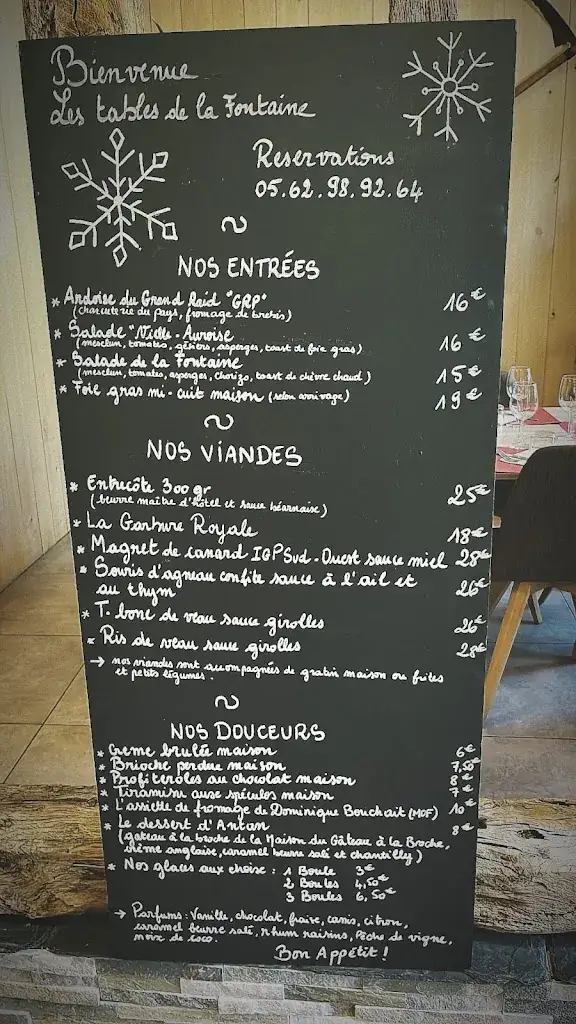 Bienvenue
Les tables de la Fontaine
Reservations
05.62.98.92.64
NOS ENTRÉES
* Ardoise du Grand Raid "GRP" 16€
(charcuterie du pays, fromage de brebis)
* Salade "Nielle-Auroise 16€
(mesclun, tomates, gésiers, asperges, toast de foie gras)
* Salade de la Fontaine 15€
(mesclun, tomates, asperges, chorizo, toast de chèvre chaud)
* Foie gras mi-cuit maison (selon arrivage) 19€
NOS VIANDES
* Entrecôte 300 gr 25€
(beurre maître d'hôtel et sauce béarnaise)
* La Garbure Royale 18€
* Magret de canard IGP Sud-Ouest sauce miel 28€
* Souris d'agneau confite sauce à l'ail et 26€
au thym
* T.bone de veau sauce girolles 26€
* Ris de veau sauce girolles 28€
→ nos viandes sont accompagnées de gratin maison ou frites
et petits légumes.
NOS DOUCEURS
* Creme brulée maison 6€
* Brioche perdue maison 7,50€
* Profiteroles au chocolat maison 8€
* Tiramisu aux spéculos maison 7€
* L'assiette de fromage de Dominique Bouchait (MOF) 10€
* Le dessert d'Antan 8€
(gateau à la broche de la Maison du Gâteau à la Broche,
crème anglaise, caramel beurre salé et chantilly)
* Nos glaces aux choix : 1 Boule 3€
2 Boules 4,50€
3 Boules 6,50€
→ Parfums: Vanille, chocolat, fraise, cassis, citron,
caramel beurre salé, rhum raisins, Pêche de vigne,
noix de coco.
Bon Appétit !